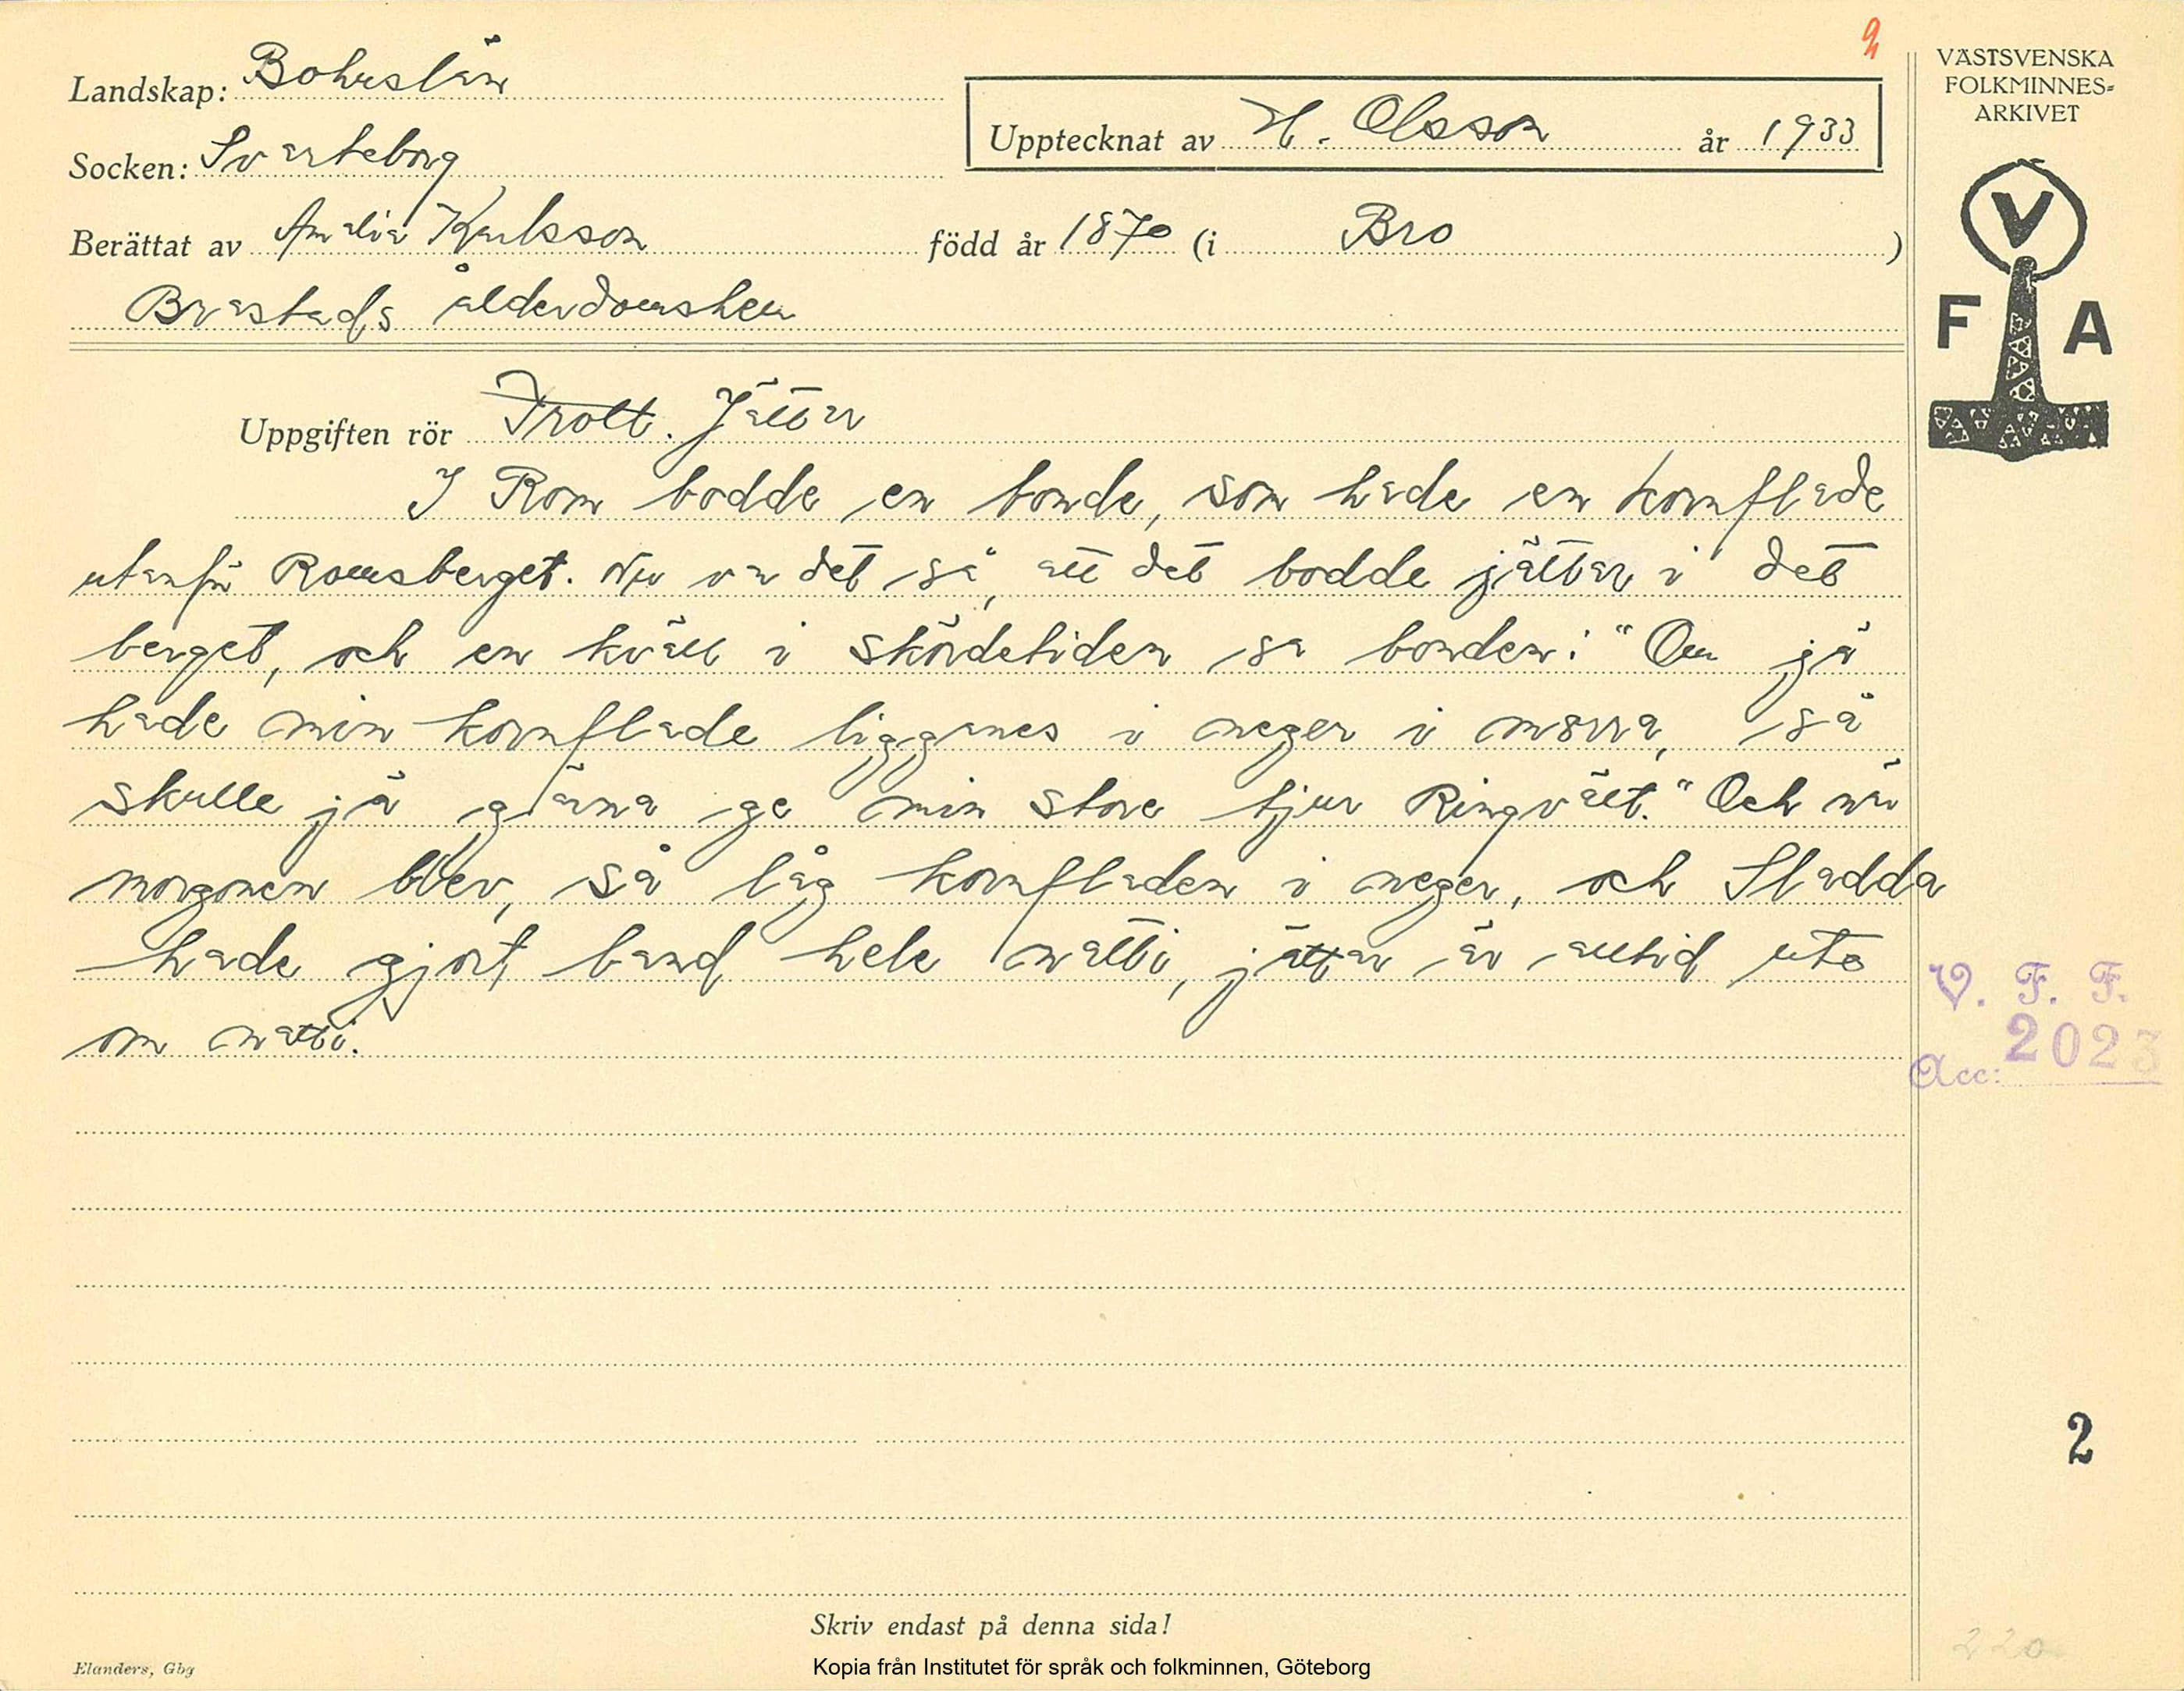 9
VÄSTSVENSKA
FOLKMINNES=
ARKIVET
Landskap: Bohuslän
Upptecknat av H. Olsson år 1933
Socken: Svarteborg
Berättat av Amalia Karlsson född år 1870 (i Bro )
Brastads ålderdomshem
V
F A
Uppgiften rör Troll. Jättar
I Rom bodde en bonde, som hade en kornflade
utanför Romsberget. Nu va det så, att det bodde jättar i det
berget, och en kväll i skördetiden sa bonden: "Om jä
hade min kornflade ligganes i neger i morra, så
skulle jä gärna ge min store tjur Ringvält." Och när
morgonen blev, så låg kornfladen i neger, och Sladda
hade gjort band hele natti, jättar är alltid ute
om natti.
V. F. F.
Acc: 2023
2
Skriv endast på denna sida!
Elanders, Gbg
Kopia från Institutet för språk och folkminnen, Göteborg
220